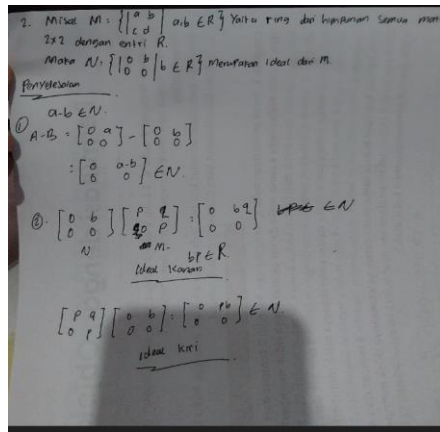 2. Misal M : { | a b c d | a,b ∈ R } Yaitu ring dari himpunan semua
2x2 dengan entri R.
Maka N : { | 0 b 0 0 | b ∈ R } Merupakan Ideal dari M.
Penyelesaian
a-b ∈ N.
① A-B = [ 0 a 0 0 ] - [ 0 b 0 0 ]
= [ 0 a-b 0 0 ] ∈ N.
②. [ 0 b 0 0 ] [ p q 0 p ] = [ 0 bq 0 0 ] ∈ N
N M.
bp ∈ R
Ideal Kanan
[ p q 0 p ] [ 0 b 0 0 ] = [ 0 pb 0 0 ] ∈ N.
Ideal kiri